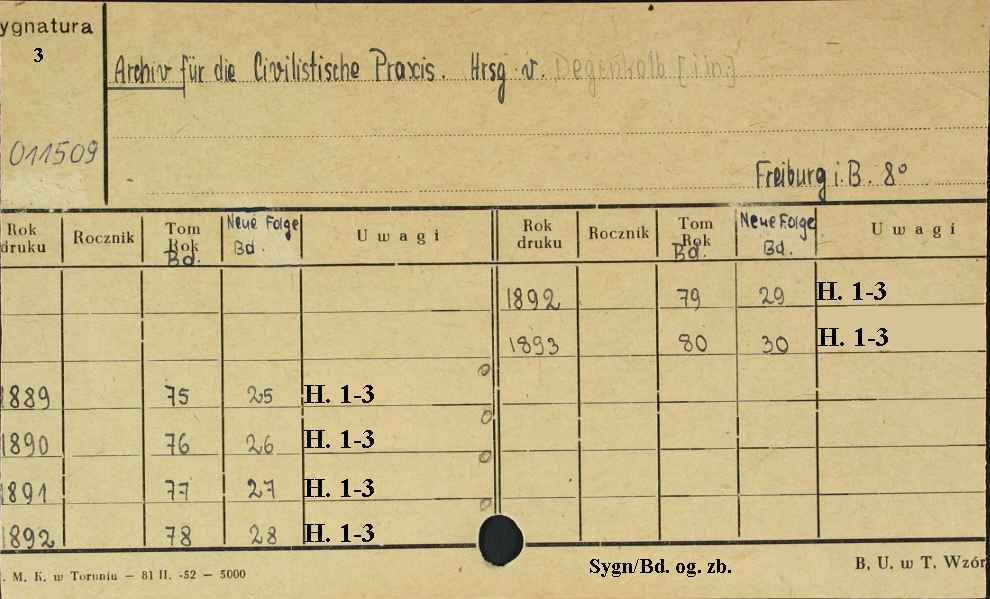 ygnatura
3
Archiv für die Civilistische Praxis. Hrsg. v. Degenkolb [i in.]
011509
Freiburg i. B. 8°
Rok druku Rocznik Tom Rok Bd. Neue Folge Bd. Uwagi Rok druku Rocznik Tom Rok Bd. Neue Folge Bd. Uwagi
1892 79 29 H. 1-3
1893 80 30 H. 1-3
1889 75 25 H. 1-3
1890 76 26 H. 1-3
1891 77 27 H. 1-3
1892 78 28 H. 1-3
Sygn/Bd. og. zb.
. M. K. w Toruniu — 81 II. -52 — 5000
B. U. w T. Wzór